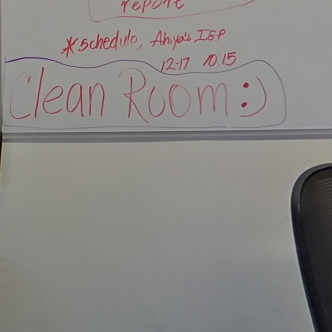 report
*Schedule, Ahiya's IEP
12-17 10:15
Clean Room :)